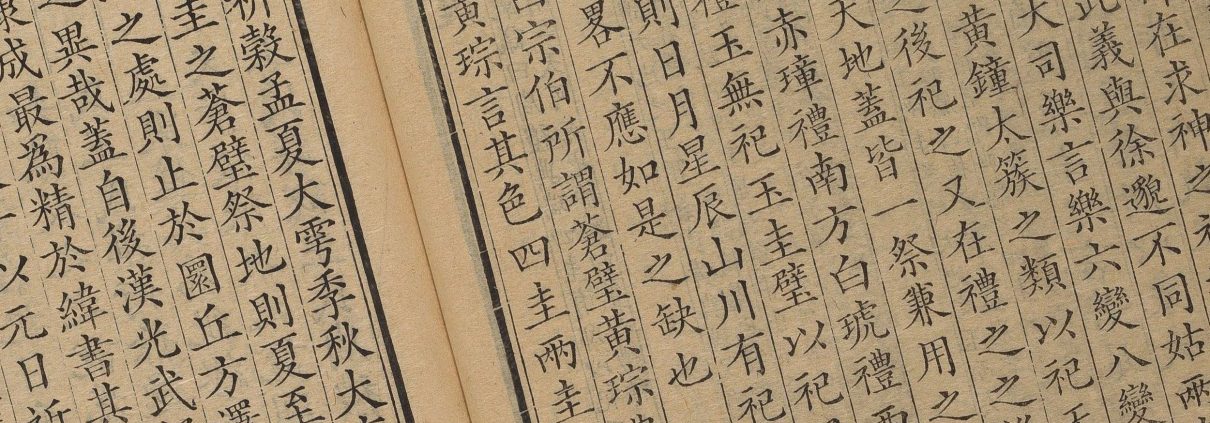 在求神之
此義與徐邈不同姑兩
大司樂言樂六變八變
黃鐘太簇之類以祀
之後祀之又在禮之之
天地蓋皆一祭兼用之
赤璋禮南方白琥禮西
禮玉無祀玉圭璧以祀
則日月星辰山川有祀
畧不應如是之缺也
宗伯所謂蒼璧黃琮
黃琮言其色四圭兩圭
祈穀孟夏大雩季秋大
圭之蒼璧祭地則夏至
之處則止於圜丘方澤
之異哉蓋自後漢光武
成最為精於緯書其
以元日祈